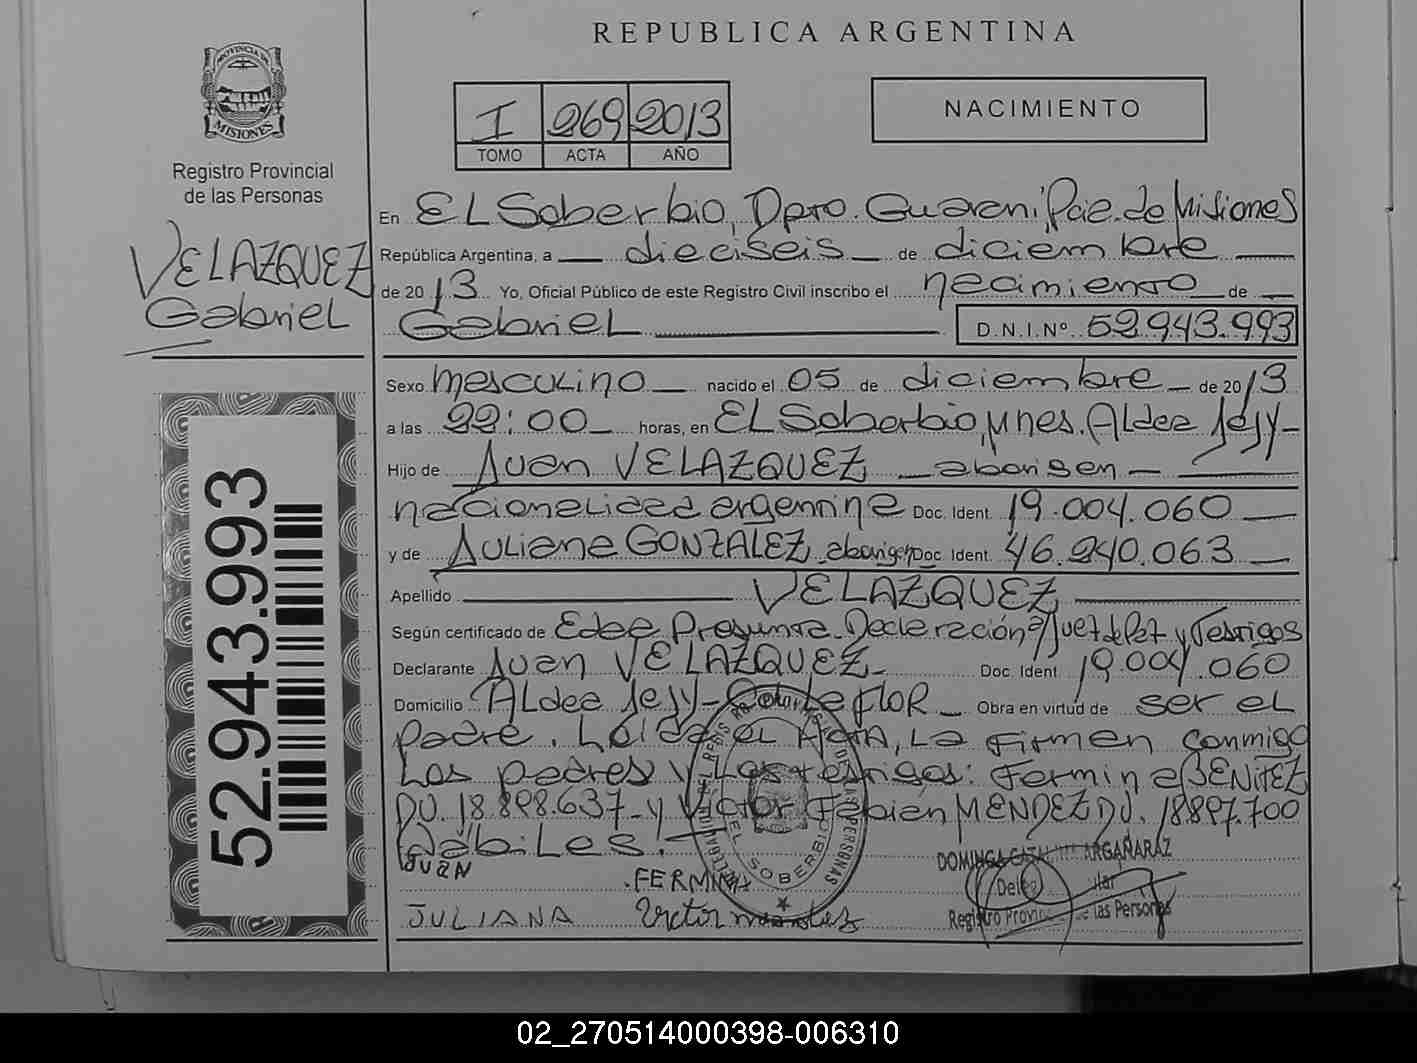 REPUBLICA ARGENTINA
PROVINCIA DE
MISIONES
Registro Provincial
de las Personas
I 269 2013
TOMO ACTA AÑO
NACIMIENTO
VELAZQUEZ
Gabriel
En El Soberbio, Dpto. Guarani, Pcie. de Misiones
República Argentina, a dieciseis de diciembre
de 2013 Yo, Oficial Público de este Registro Civil inscribo el nacimiento de
Gabriel D.N.I.Nº 52.943.993
Sexo masculino nacido el 05 de diciembre de 2013
a las 22:00 horas, en El Soberbio, Mnes. Aldea Jejy-
Hijo de Juan VELAZQUEZ aborigen
nacionalidad argentina Doc. Ident. 19.004.060
y de Juliana GONZALEZ, aborigen Doc. Ident. 46.240.063
Apellido VELAZQUEZ
Según certificado de Edad Presunta. Declaración a/Juez de Paz y Testigos
Declarante Juan VELAZQUEZ Doc. Ident 19.004.060
Domicilio Aldea Jejy- Colonia Flor Obra en virtud de ser el
padre. Leída el Acta, La firman conmigo
Los padres y Los testigos: Fermina BENITEZ
DU. 18.898.637- y Victor Fabián MENDEZ DU. 18.897.700
Habiles.-
JUAN
FERMINA
JULIANA Victor mendez
EL SOBERBIO
DOMINGA ARGAÑARAZ
Registro Provinc de las Personas
52.943.993
02_270514000398-006310